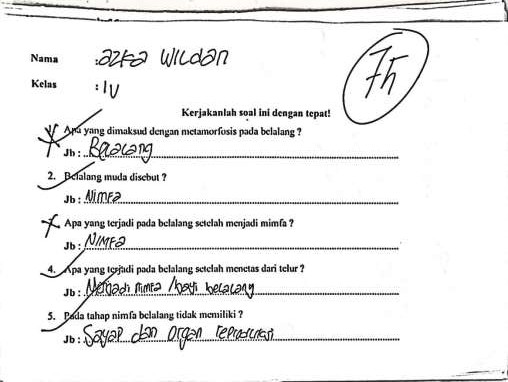 Nama : azka Wildan
75
Kelas : IV
Kerjakanlah soal ini dengan tepat!
Apa yang dimaksud dengan metamorfosis pada belalang ?
Jb : Belalang
2. Belalang muda disebut ?
Jb : Nimfa
Apa yang terjadi pada belalang setelah menjadi mimfa ?
Jb : Nimfa
4. Apa yang terjadi pada belalang setelah menetas dari telur ?
Jb : Menjadi nimfa / bayi belalang
5. Pada tahap nimfa belalang tidak memiliki ?
Jb : Sayap dan Organ reproduksi